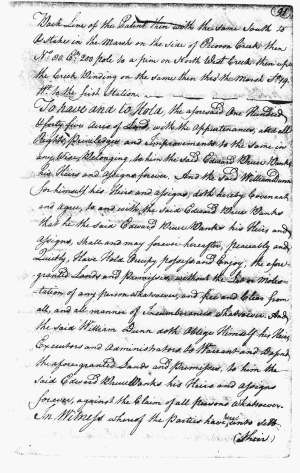 Back Line of the Patent then with the same South to
a Stake in the Marsh on the Side of Creek then
No. 80 Eo. 200 pole to a pine on North West Creek then up
the Creek Winding on the same then thro the Marsh
Wt. to the first Station
To have and to Hold, the aforesaid One Hundred
& forty five Acres of Land with the Appurtenances, and all
Rights, Priviledges and Improvements to the Same in
any Wise Belonging, to him the Said Edward
his Heirs and Assigns forever. And the Said William Dunn
for himself his Heirs and Assigns, doth hereby Covenant
and agree, to and with the Said Edward
that he the Said Edward his Heirs and
Assigns, Shall and may forever hereafter, peaceably and
Quietly, Have Hold Occupy possess and Enjoy, the afore
granted Lands and Premisses, without the Moles
tation of any person whatsoever, and free and Clear from
all, and all manner of Incumbrances Whatsoever And
the Said William Dunn doth Oblige Himself his Heirs
Executors and Administrators to Warrant and Defend
the afore granted Lands and Premisses, to him the
Said Edward his Heirs and Assigns
forever, against the Claim of all persons Whatsoever.
In Witness whereof the Parties have
(Their)